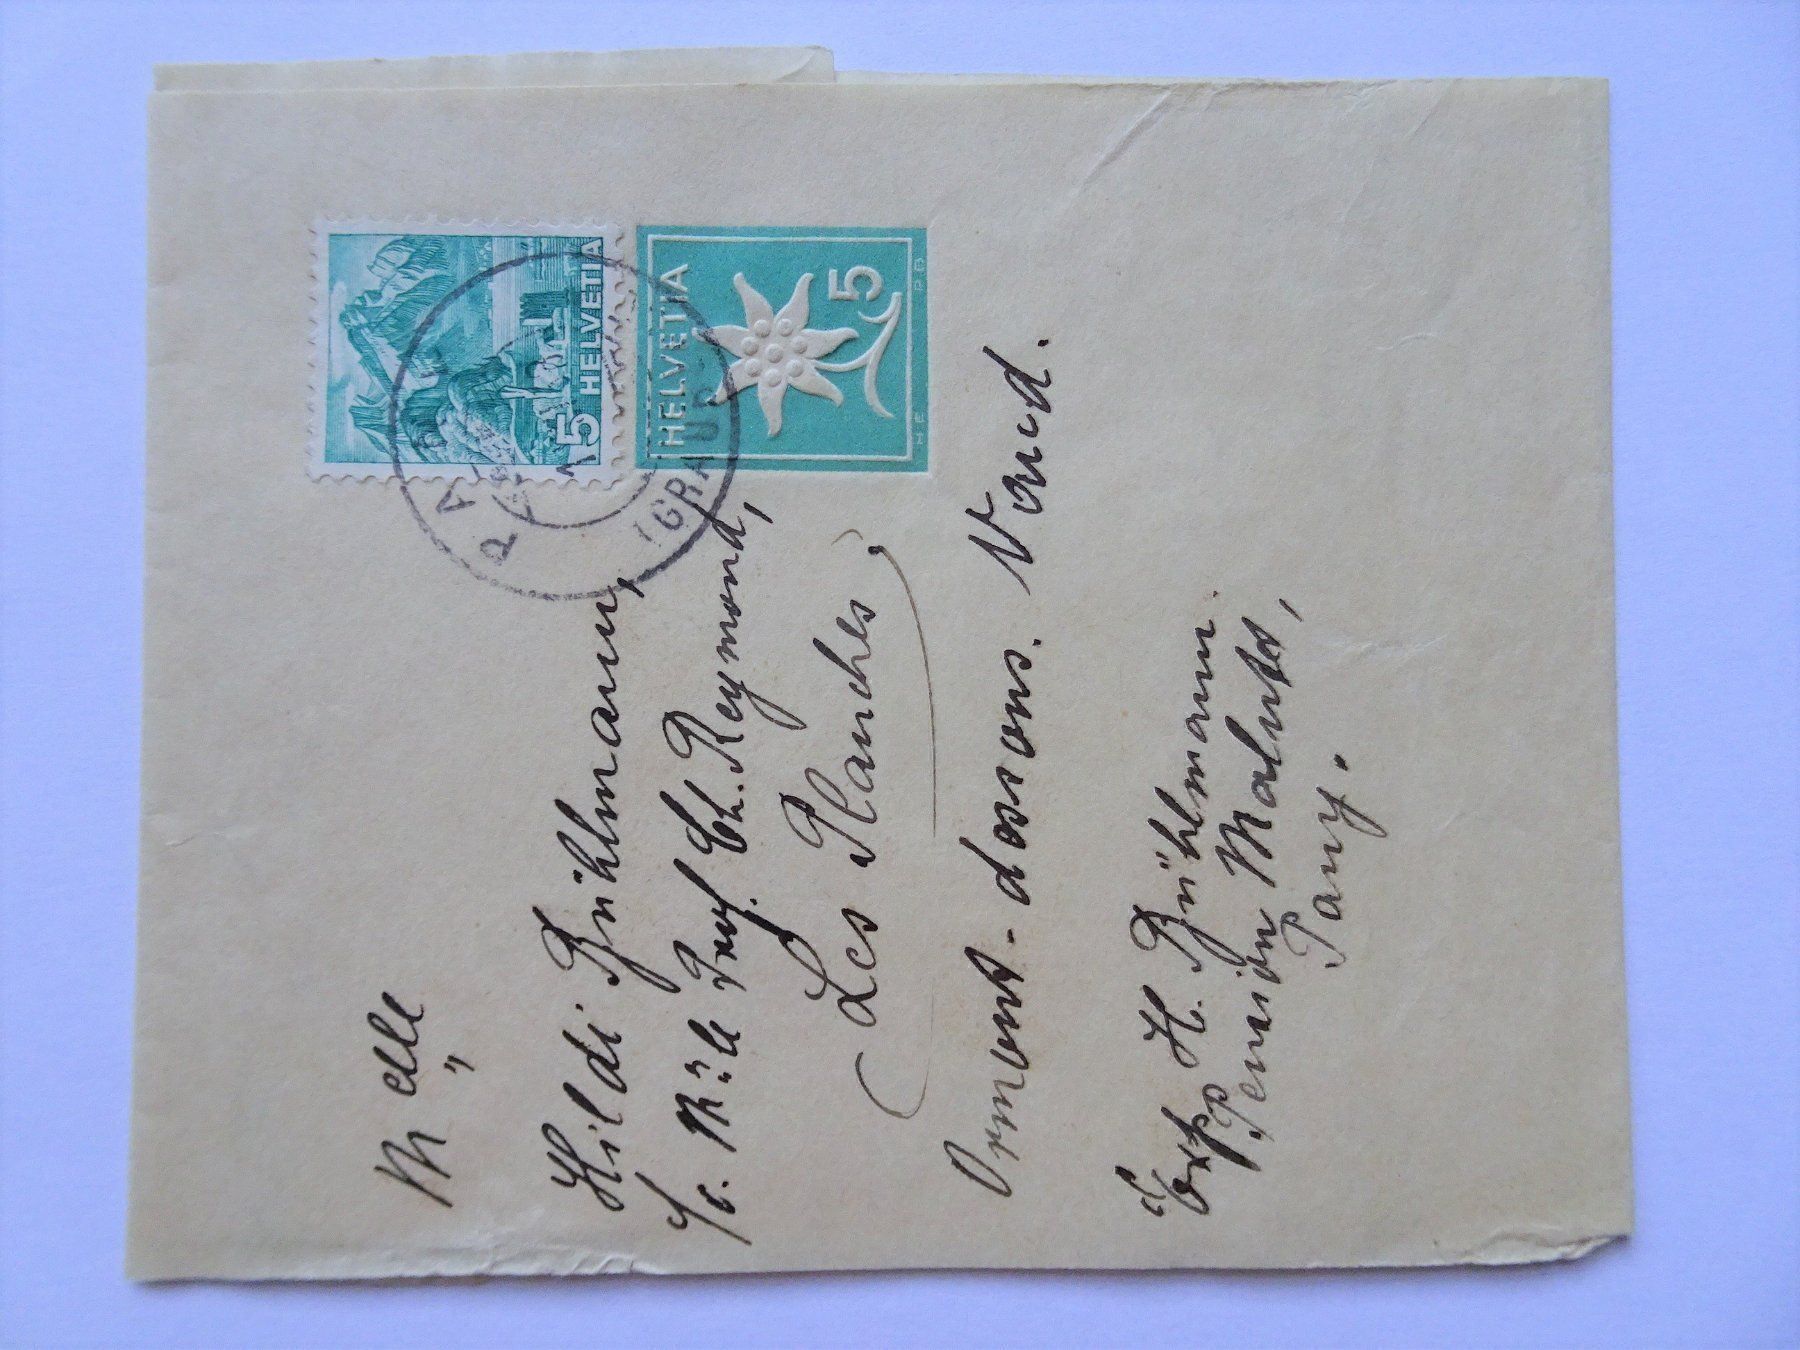 5 HELVETIA
HELVETIA
5
H.E.
P.B.
PANY
(GRAUB
Melle
Hildi Bühlmann,
c/o. Mlle Prof. Ch. Reymond,
Les Planches
Ormont-dessous. Vaud.
Exp H. Bühlmann.
Pension Maluks,
Pany.